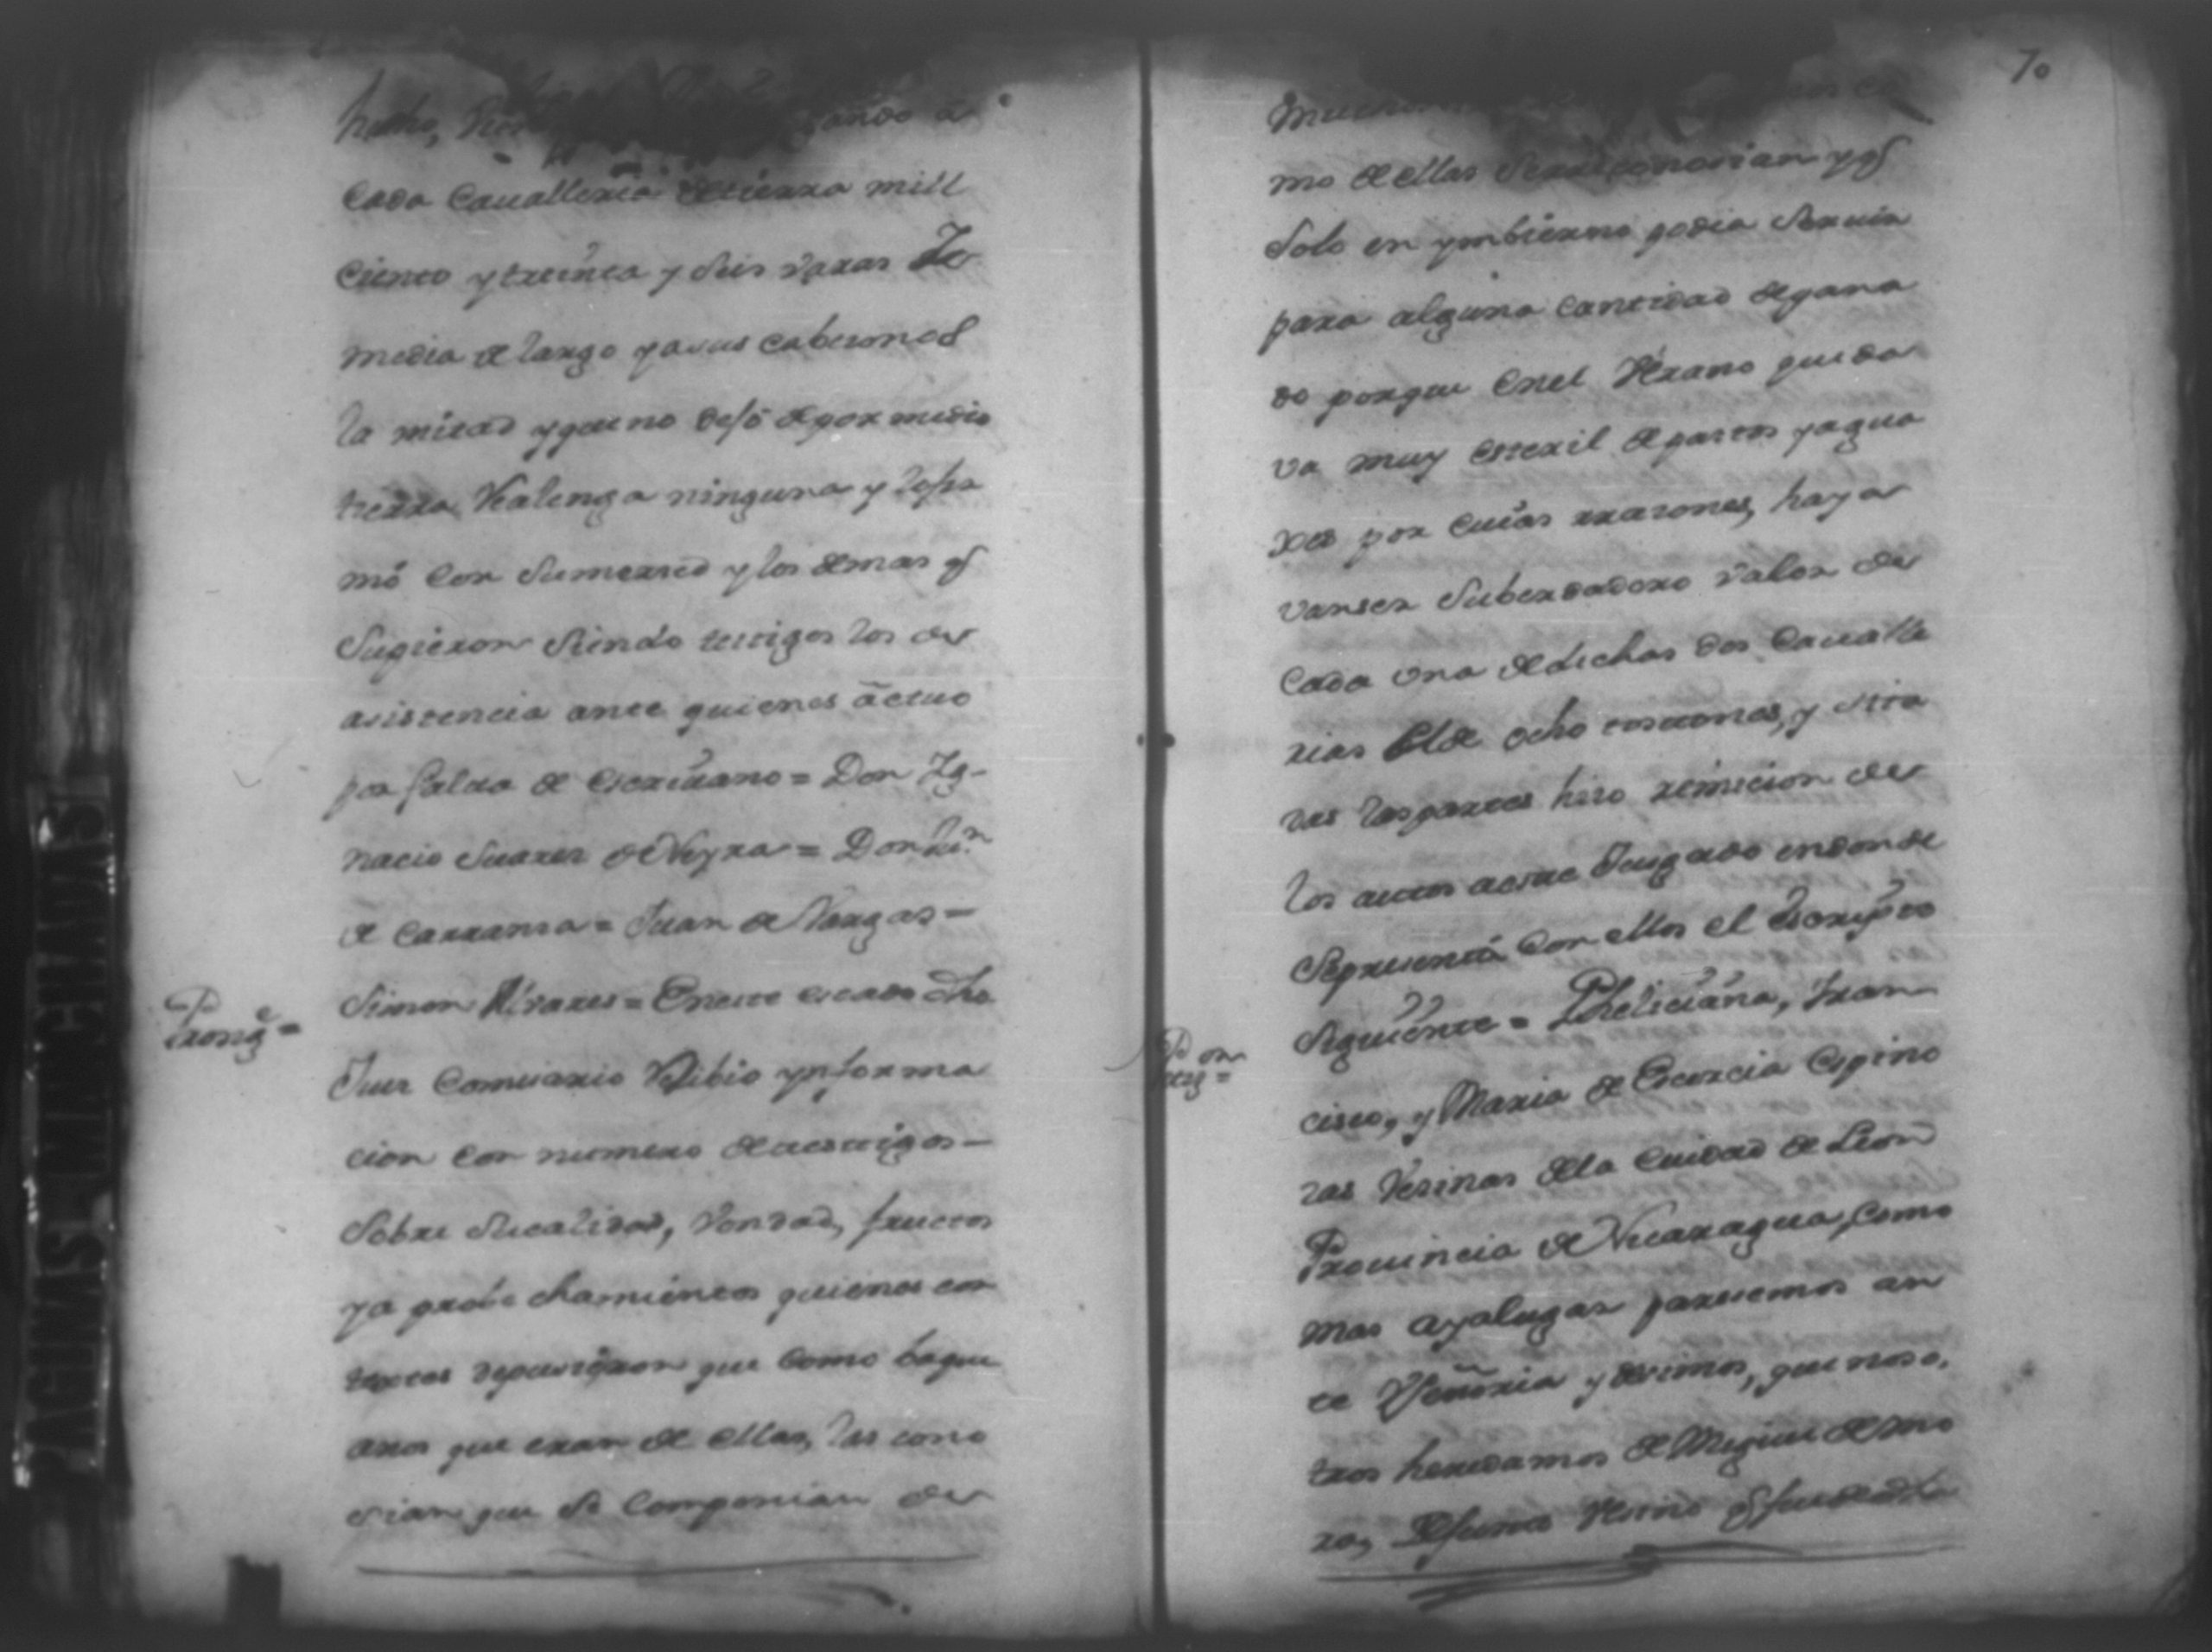 hecho,
Cada Cauallexia detierra mill
Ciento ytreinta y Seis varas Y
media de largo yasus cabesones
la mitad yque no dejó depor medio
tierra Realenga ninguna y lofir
mó Con Sumerced ylos demas q
Supieron Siendo testigos los de
asistencia ante quienes actuo
por falta de escriuano = Don Ig-
nacio Suares de Neyra = Don
de Carransa = Juan de Vargas =
Simon Alvares = Eneste estado dho
Juez Comisario Resibio ynforma
cion con numero detestigos =
Sobre Sucalidad, Vondad, fructos
ya probechamientos quienes con
testes depusieron que Como baquea
anos que eran de ellas, las cono
sian que Se Componian de
70
mo de ellas Se reconosian yq
Solo en ymbierno podia Seruir
para alguna Cantidad degana
do porque Enel Verano queda
va muy esteril depastos yagua
xes por cuias rrasones, haya
van ser Suberdadero valor de
Cada una dedichas dos Caualle
rias El de ocho tostones, y sita
das laspartes hiso remicion de
los autos aeste Jusgado endonde
Sepresentó Con ellos el Escripto
Siguiente = Pheliciana, Fran
cisco, y Maria de Escorcia Espino
zas Vesinas dela Ciudad de Leon
Prouincia de Nicaragua, Como
mas ayalugar paresemos an
te Vseñoria y desimos, que noso,
tros heredamos de Miguel de Mo
ra, Difunto Vesino q fue de dha